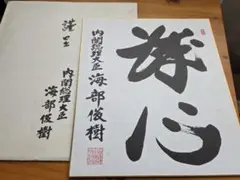 心
内閣総理大臣 海部俊樹
謹呈
内閣総理大臣
海部俊樹